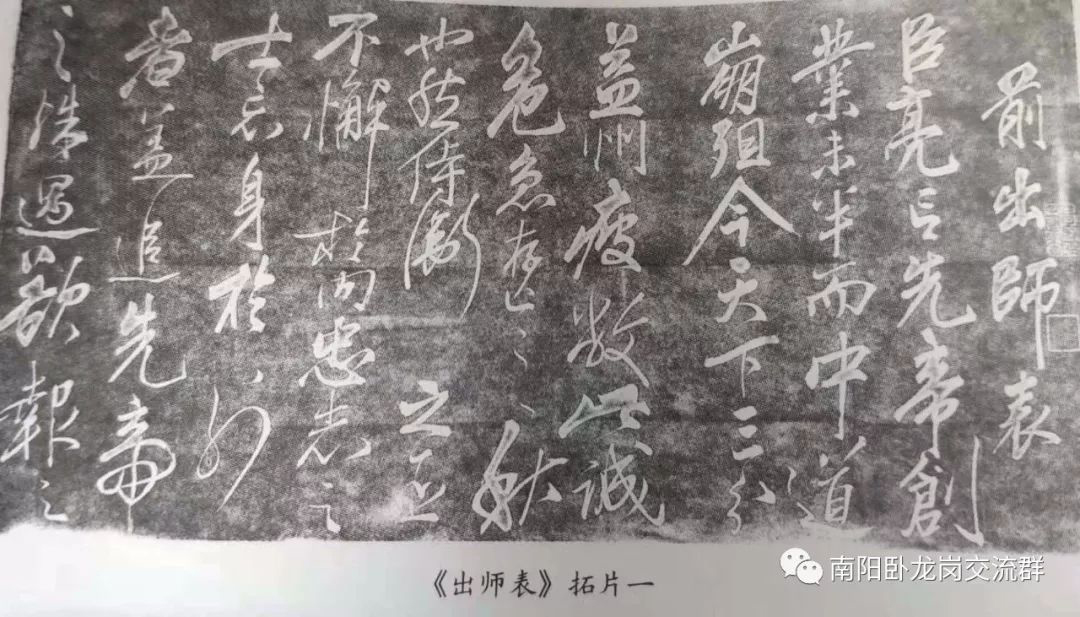 前出師表
臣亮言先帝創
業未半而中道
崩殂今天下三分
益州疲敝此誠
危急存亡之秋
也然侍衛之臣
不懈於内忠志之
士忘身於外
者蓋追先帝
之殊遇欲報之
《出师表》拓片一
南阳卧龙岗交流群